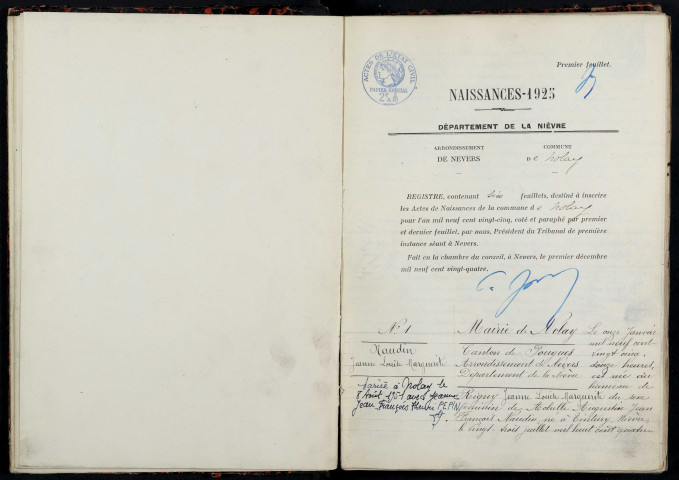 Premier feuillet.
ACTES DE L'ETAT CIVIL
PAPIER SPECIAL
NAISSANCES-1925
DÉPARTEMENT DE LA NIÈVRE
ARRONDISSEMENT
DE NEVERS
COMMUNE
De Nolay
REGISTRE, contenant six feuillets, destiné à inscrire
les Actes de Naissances de la commune de Nolay
pour l'an mil neuf cent vingt-cinq, coté et paraphé par premier
et dernier feuillet, par nous, Président du Tribunal de première
instance séant à Nevers.
Fait en la chambre du conseil, à Nevers, le premier décembre
mil neuf cent vingt-quatre.
N° 1
Naudin
Jeanne Louise Marguerite
Mariée à Nolay le
8 Août 1951 avec
Jean François PEPIN
Mairie de Nolay
Canton de Pougues
Arrondissement de Nevers
Département de la Nièvre
Le onze Janvier
mil neuf cent
vingt cinq,
douze heures,
est née au
hameau de
Rigny Jeanne Louise Marguerite du sexe
féminin de Augustin Jean
François Naudin né à Nièvre
le vingt-trois juillet mil huit cent quatre